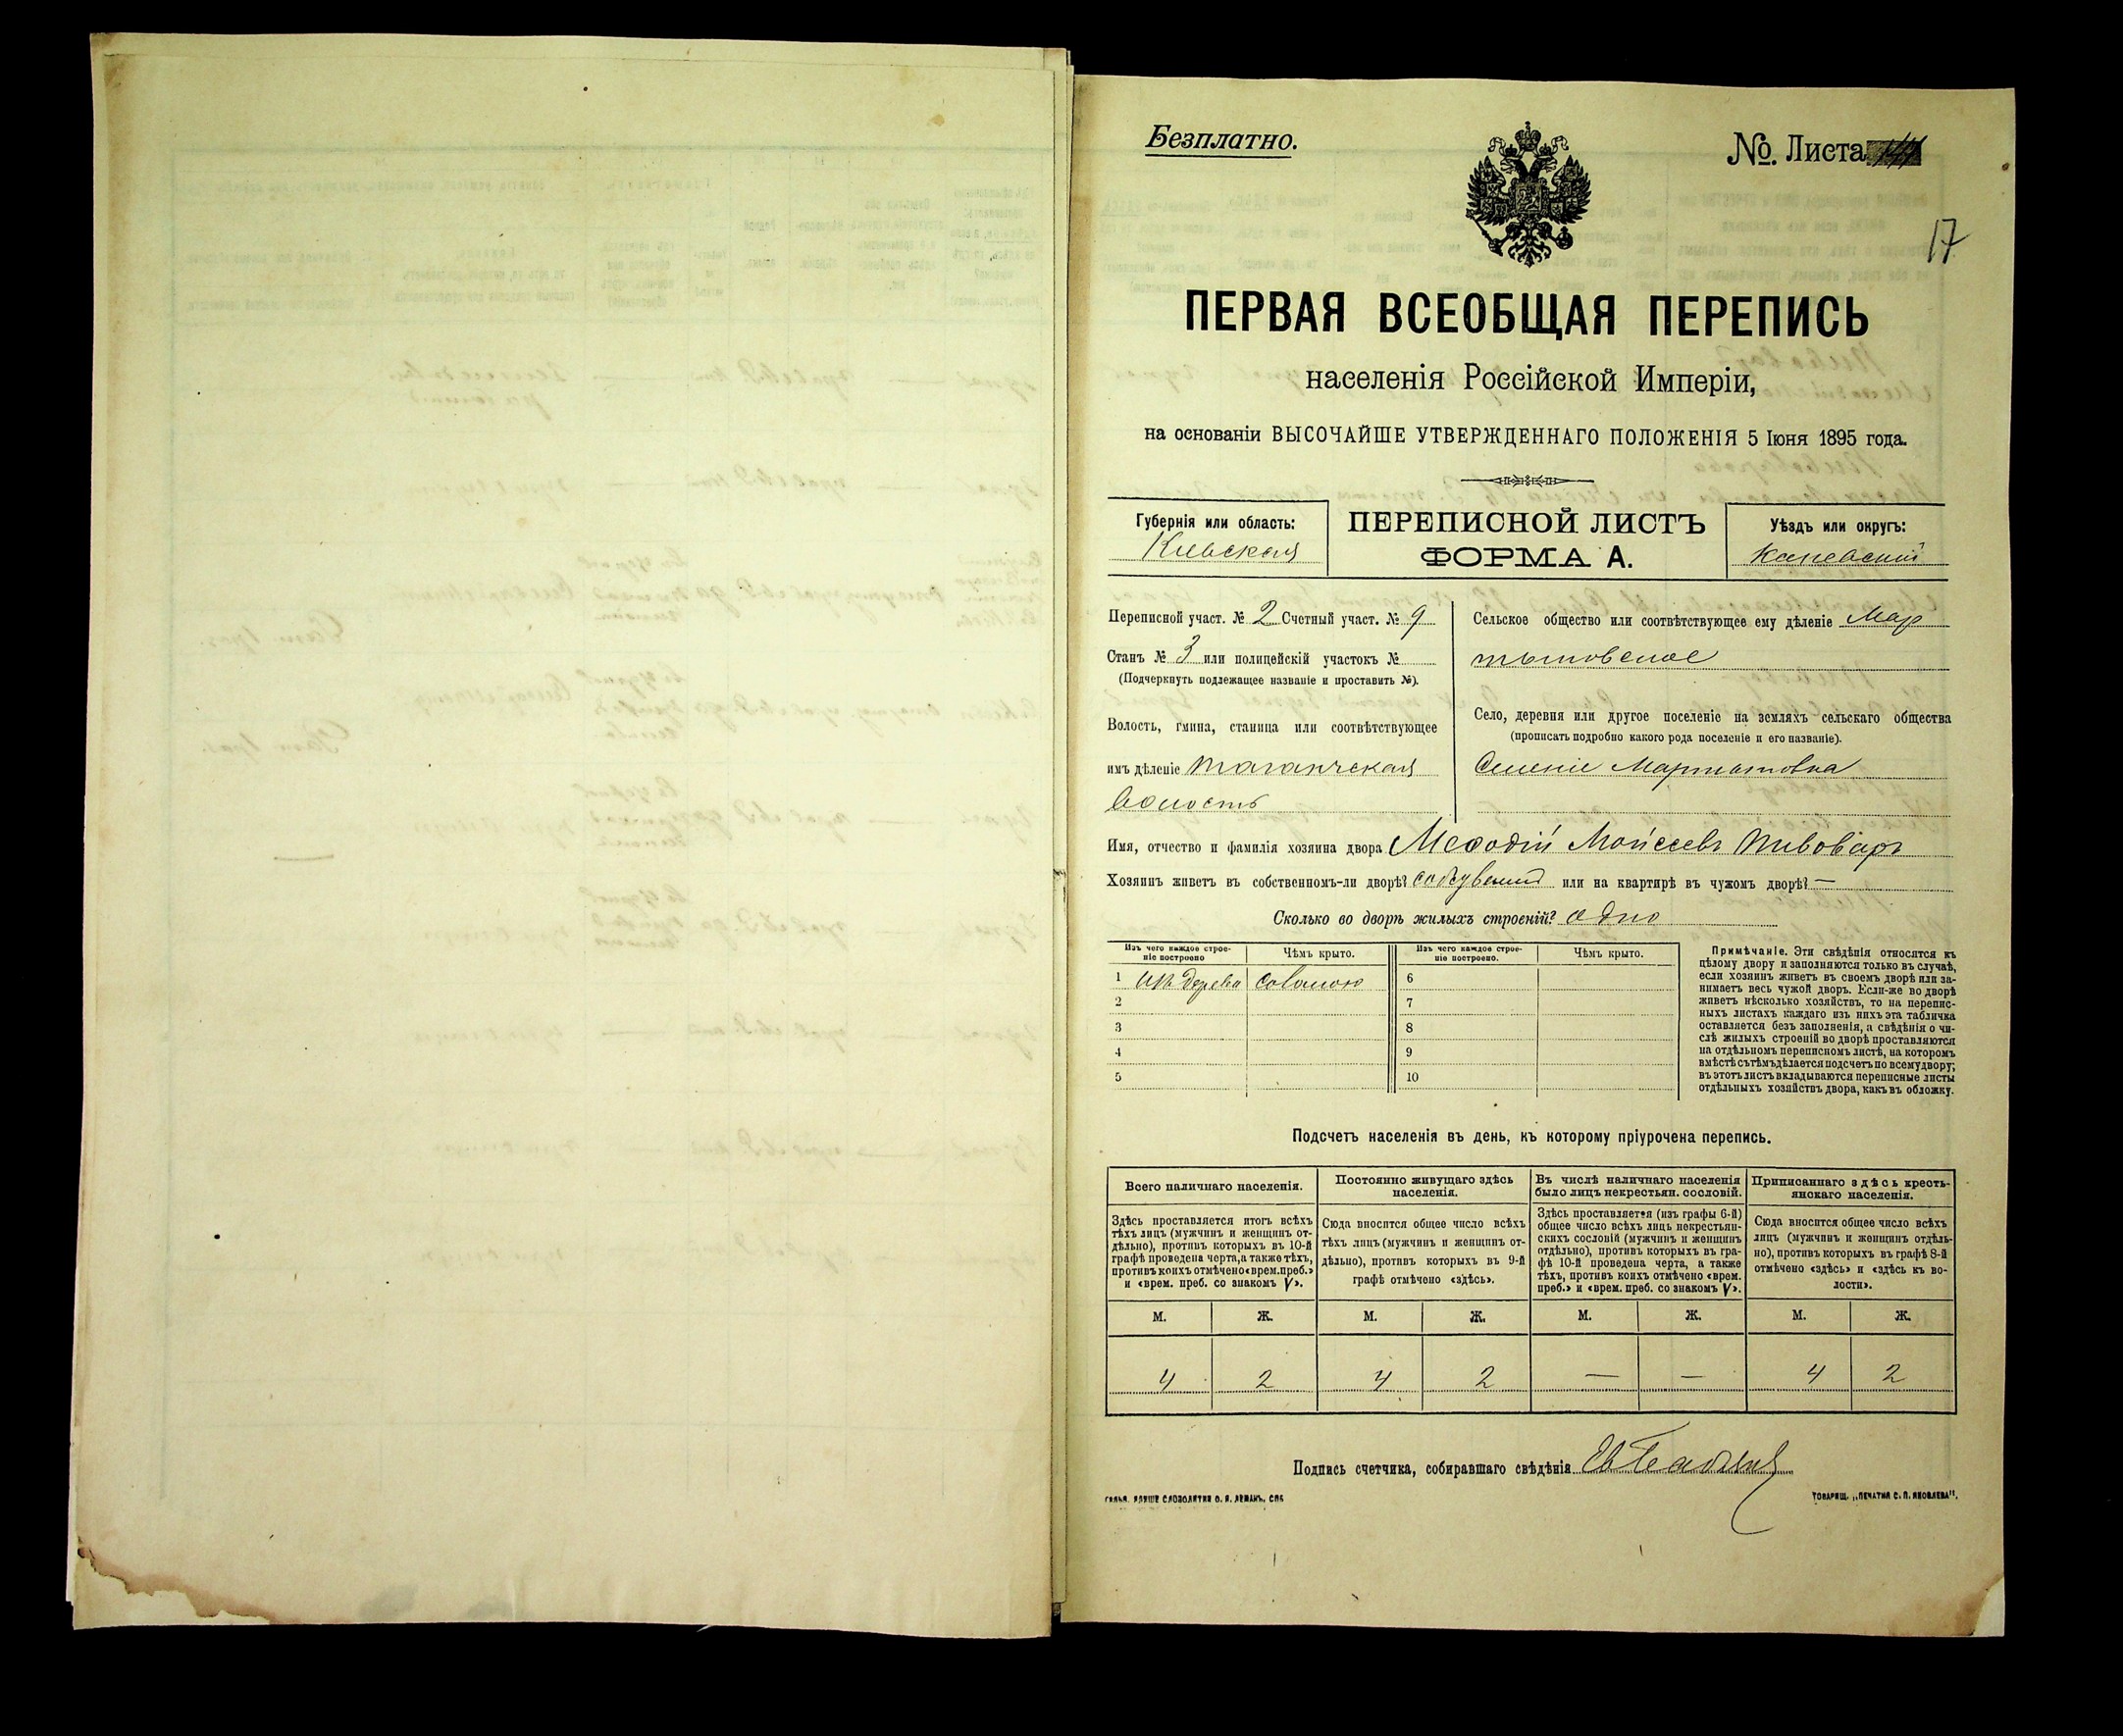 Безплатно.
№. Листа
17
ПЕРВАЯ ВСЕОБЩАЯ ПЕРЕПИСЬ
населенія Россійской Имперіи,
на основаніи ВЫСОЧАЙШЕ УТВЕРЖДЕННАГО ПОЛОЖЕНІЯ 5 Іюня 1895 года.
Губернія или область:
Кіевская
ПЕРЕПИСНОЙ ЛИСТЪ
ФОРМА А.
Уѣздъ или округъ:
Каневскій
Переписной участ. № 2 Счетный участ. № 9
Станъ № 3 или полицейскій участокъ №
(Подчеркнуть подлежащее названіе и проставить №).
Волость, гмина, станица или соотвѣтствующее
имъ дѣленіе Таганчская
волость
Сельское общество или соотвѣтствующее ему дѣленіе Мар
тыновское
Село, деревня или другое поселеніе на земляхъ сельскаго общества
(прописать подробно какого рода поселеніе и его названіе).
Селеніе Мартыновка
Имя, отчество и фамилія хозяина двора Меѳодій Мойсеевъ Пивоваръ
Хозяинъ живетъ въ собственномъ-ли дворѣ? или на квартирѣ въ чужомъ дворѣ? —
Сколько во дворѣ жилыхъ строеній? одно
Изъ чего каждое строе-
ніе построено
Чѣмъ крыто.
Изъ чего каждое строе-
ніе построено.
Чѣмъ крыто.
1 изъ дерева соломою 6
2 7
3 8
4 9
5 10
Примѣчаніе. Эти свѣдѣнія относятся къ
цѣлому двору и заполняются только въ случаѣ,
если хозяинъ живетъ въ своемъ дворѣ или за-
нимаетъ весь чужой дворъ. Если-же во дворѣ
живетъ нѣсколько хозяйствъ, то на перепис-
ныхъ листахъ каждаго изъ нихъ эта табличка
оставляется безъ заполненія, а свѣдѣнія о чи-
слѣ жилыхъ строеній во дворѣ проставляются
на отдѣльномъ переписномъ листѣ, на которомъ
вмѣстѣ съ тѣмъ дѣлается подсчетъ по всему двору;
въ этотъ листъ вкладываются переписные листы
отдѣльныхъ хозяйствъ двора, какъ въ обложку.
Подсчетъ населенія въ день, къ которому пріурочена перепись.
Всего наличнаго населенія.
Постоянно живущаго здѣсь
населенія.
Въ числѣ наличнаго населенія
было лицъ некрестьян. сословій.
Приписаннаго здѣсь кресть-
янскаго населенія.
Здѣсь проставляется итогъ всѣхъ
тѣхъ лицъ (мужчинъ и женщинъ от-
дѣльно), противъ которыхъ въ 10-й
графѣ проведена черта, а также тѣхъ,
противъ коихъ отмѣчено «врем. преб.»
и «врем. преб. со знакомъ V».
Сюда вносится общее число всѣхъ
тѣхъ лицъ (мужчинъ и женщинъ от-
дѣльно), противъ которыхъ въ 9-й
графѣ отмѣчено «здѣсь».
Здѣсь проставляется (изъ графы 6-й)
общее число всѣхъ лицъ некрестьян-
скихъ сословій (мужчинъ и женщинъ
отдѣльно), противъ которыхъ въ гра-
фѣ 10-й проведена черта, а также
тѣхъ, противъ коихъ отмѣчено «врем.
преб.» и «врем. преб. со знакомъ V».
Сюда вносится общее число всѣхъ
лицъ (мужчинъ и женщинъ отдѣль-
но), противъ которыхъ въ графѣ 8-й
отмѣчено «здѣсь» и «здѣсь къ во-
лости».
М. Ж. М. Ж. М. Ж. М. Ж.
4 2 4 2 — — 4 2
Подпись счетчика, собиравшаго свѣдѣнія
ТОВАРИЩ. „ПЕЧАТНЯ С. П. ЯКОВЛЕВА".